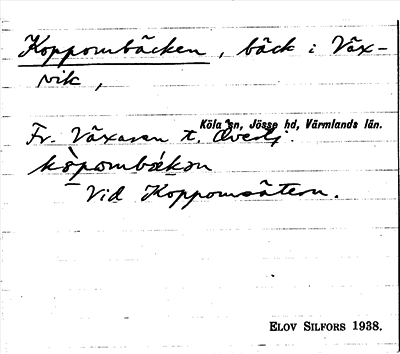 Koppombäcken, bäck i Väx-
vik,
Köla sn, Jösse hd, Värmlands län.
Fr. Växaren t.
kòpombǽkən
Vid Koppomsätern.
ELOV SILFORS 1938.